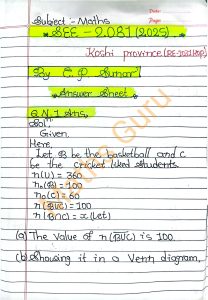 Date:
Page:
Subject - Maths
SEE - 2081 (2025)
Koshi province (RE-1031'BP)
By C.P Kumar
Answer Sheet
Q.N.1 Ans,
Solⁿ,
Given,
Here,
Let B be the basketball and C
be the cricket liked students
n(U) = 360
n₀(B) = 100
n₀(C) = 60
n(B̅U̅C̅) = 100
n(B∩C) = x (Let)
(a) The value of n(B̅U̅C̅) is 100.
(b) Showing it in a Venn diagram,
Guru